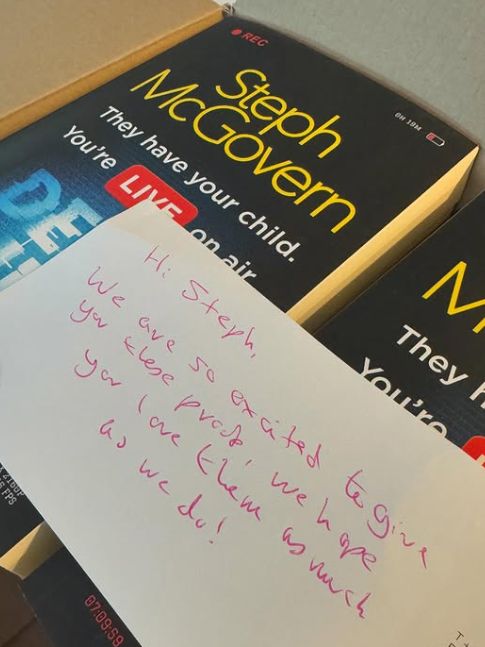 REC
0H 19M
Steph
McGovern
They have your child.
You're LIVE on air.
DE
Hi Steph,
We are so excited to give
you these proofs, we hope
you love them as much
as we do!
M
They
You're
07:09:59
FPS